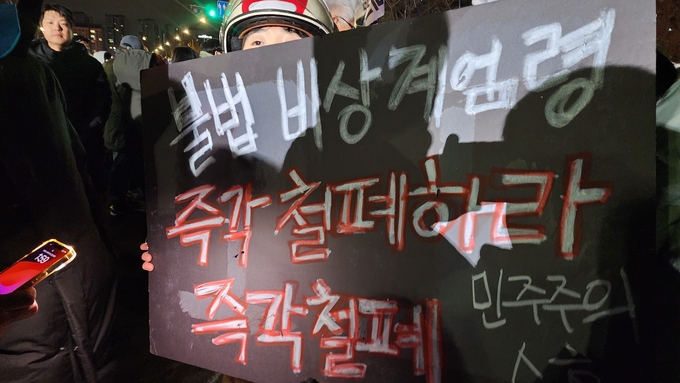 불법 비상계엄령
즉각 철폐하라
즉각 철폐
민주주의